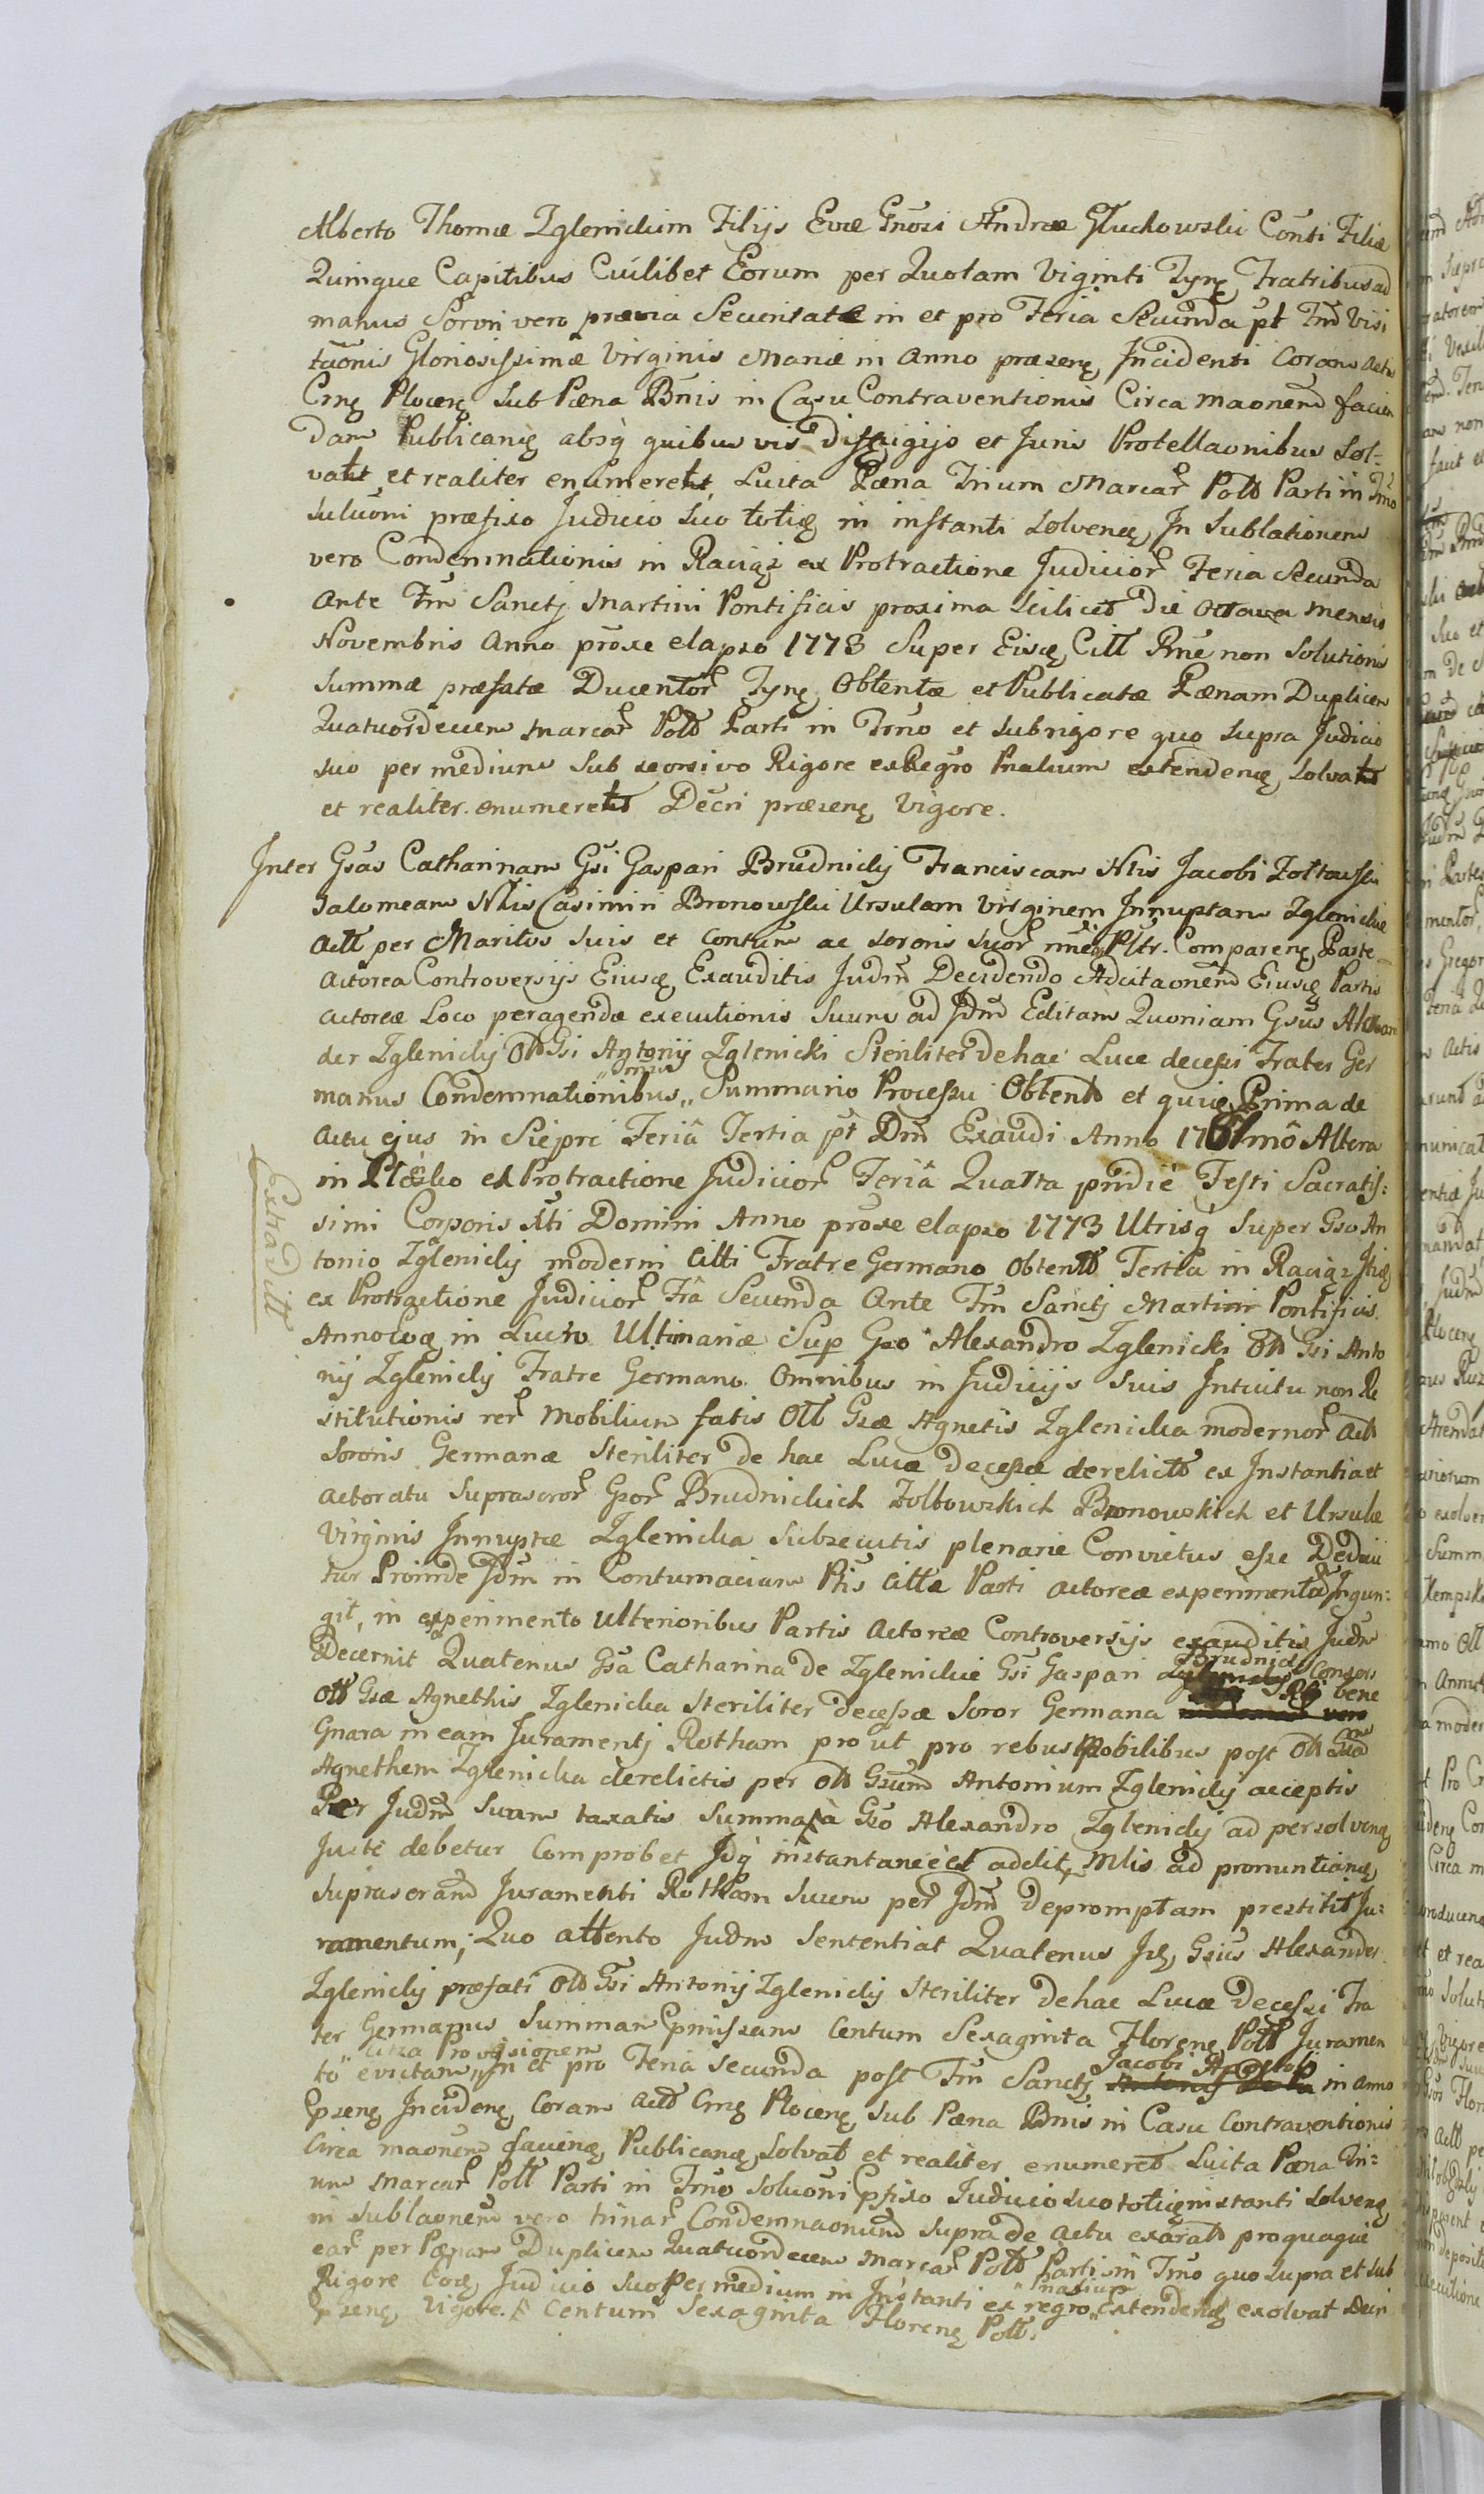 Alberto Thomæ Zglenickim Filijs Evæ Gnosi Andreæ Gluchowski Conti Filiæ
Quinque Capitibus Cuilibet Eorum per Quotam Viginti Tynf Fratribus ad
manus Sorori vero prævia Securitate in et pro Feria Secunda pt Fm Visi
taõnis Gloriosissimæ Virginis Mariæ in Anno præsenę Incidenti Coram Actis
Crnę Plocenę sub Pæna Bnis in Casu Contraventionis Circa maonem facien
dam Publicanę absq quibus vis diffugijs et Juris Protellaonibus Sol-
vant et realiter enumerent Luita Pæna Trium Marcar Poll Parti in Tmo
Soluoni præfixo Judicio suo totię in instanti Solvenę, In Sublationem
vero Condemnationis in Raciąż ex Protractione Judicior Feria Secunda
Ante Fm Sanctj Martini Pontificis proxima Scilicet Die Octava Mensis
Novembris Anno proxe elapso 1773 Super Eisdę Citt Rne non Solutionis
Summæ præfatæ Ducentor Tynf Obtentæ et Publicatæ Pænam Duplicem
Quatuordecem Marcar Poll Parti in Tmo et sub rigore quo supra Judicio
suo per medium sub seorsivo Rigore ex Regro Pnalium extendenę solvant
et realiter enumerent Decri præsenę Vigore.
Inter Gsas Catharinam Gsi Gaspari Brudnicky Franciscam Nlis Jacobi Zoltowski
Salomeam Nlis Casimiri Bronowski Ursulam Virginem Innuptam Zglenickie
Actt per Maritos suis et Contum ac Sororis suor nneq Pltr. Comparenę Parte
Actorea Controversijs Eiusdę Exauditis Judm Decidendo Adcitaonem Eiusdę Partis
Actoreæ Loco peragendæ executionis Suum ad Jdm Editam Quoniam Gsus Alexan
der Zglenicky Olb Gsi Antonij Zglenicki Steriliter de hac Luce decessi Frater Ger
manus Condemnationibus „mus„ Summario Processu Obtent et quię Prima de
Actu ejus in Sierpc Feriâ Tertia pt Dm Exaudi Anno 1761mô Altera
in Płocko ex Protractione Judicior Feriâ Quarta pridie Festi Sacratis-
simi Corporis Xti Domini Anno proxe elapso 1773 Utrisq Super Gso An
tonio Zglenicky moderni Citti Fratre Germano Obtentt Tertia in Raciąż Itidę
ex Protractione Judicior Frâ Secunda Ante Fm Sanctj Martini Pontificis
Anno Eodę in Lucro Ultimariæ Sup Gso Alexandro Zglenicki Olb Gsi Anto
nij Zglenicky Fratre Germano Omnibus in Judicijs Suis Intuitu non Re
stitutionis rer Mobilium fatis Olb Gsæ Agnetis Zglenicka modernor Actt
Sororis Germanæ Steriliter de hac Luce decessæ derelictt ex Instantia et
Actoratu Suprascror Gsor Brudnickich Zoltowskich Bronowskich et Ursulæ
Virginis Innuptæ Zglenicka Subsecutis plenarie Convictus esse Deduci
tur Proinde Jdm in Contumaciam Ptis Cittæ Parti Actoreæ experimentum Injun-
git, in experimento Ulterioribus Partis Actoreæ Controversijs exauditis Judm
Decernit Quatenus Gsa Catharina de Zglenickie Gsi Gaspari Brudnicky Consors
Olb Gsæ Agnethis Zglenicka Steriliter decessæ Soror Germana Rei bene
Gnara in eam Juramentj Rotham pro ut pro rebus Mobilibus post Olb Gsam
Agnethem Zglenicka derelictis per Olb Gsum Antonium Zglenicky acceptis
Per Judm Suum taxatis Summa ⨍ à Gso Alexandro Zglenicky ad persolvenę
Juste debetur Comprobet Jdq instantanee et addit, Mlis ad pronuntianę
Suprascrand Juramenti Rotham Suum per Jdm depromptam prestitit Ju-
ramentum; Quo attento Judm Sententiat Quatenus Jdę Gsus Alexander
Zglenicky præfati Olb Gsi Antonij Zglenicky Steriliter de hac Luce decessi Fra
ter Germanus Summam Epmissam Centum Sexaginta Florenę Poll Juramen
to evictam „citra Provisionem„ In et pro Feria Secunda post Fm Sanctj Jacobi Apostoli in anno
Epsenę Incidenę Coram Actt Crnę Plocenę sub Pæna Bnis in Casu Contraventionis
Circa maonem facienę Publicanę Solvat et realiter enumeret Luita Pæna Tri-
um Marcar Poll Parti in Tmo Soluoni Epfixo Judicio suo totię instanti Solvenę
in sublaonem vero trinar Condemnaonum supra de actu exaratt pro quaque
ear per Pænam Duplicem Quatuordecem Marcar Poll Parti in Tmo quo supra et sub
Rigore Eodę Judicio suo Per medium in Instanti ex regro „Pnalium„ extendenę exolvat Decri
Epsenę Vigore. ⨍ Centum Sexaginta Florenę Poll.
Extraditt